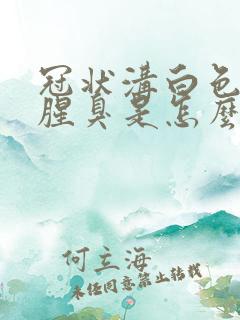 冠狀溝白色
腥臭是怎麼
何立海
未经同意禁止转载